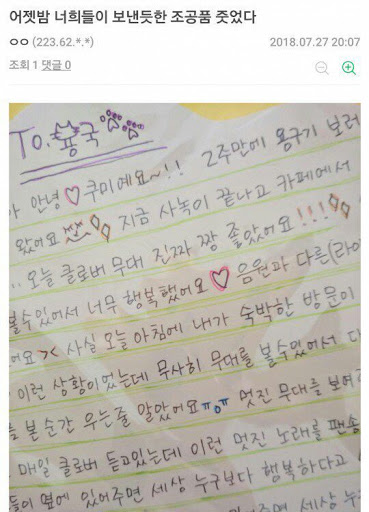 어젯밤 너희들이 보낸듯한 조공품 줏었다
ㅇㅇ (223.62.*.*) 2018.07.27 20:07
조회 1 댓글 0
To. 용국
안녕♡쿠미예요~!! 2주만에 용구기 보러
왔어요 지금 사녹이 끝나고 카페에서
.. 오늘 클로버 무대 진짜 짱 좋았어요!!!
볼수있어서 너무 행복했어요♡ 음원과 다른(라이
어요>< 사실 오늘 아침에 내가 숙박한 방문이
이런 상황이었는데 무사히 무대를 볼수있어서 다
를 본 순간 우는줄 알았어요ㅠㅠ 멋진 무대를 보여
매일 클로버 듣고있는데 이런 멋진 노래를 팬송
들이 옆에 있어주면 세상 누구보다 행복하다고